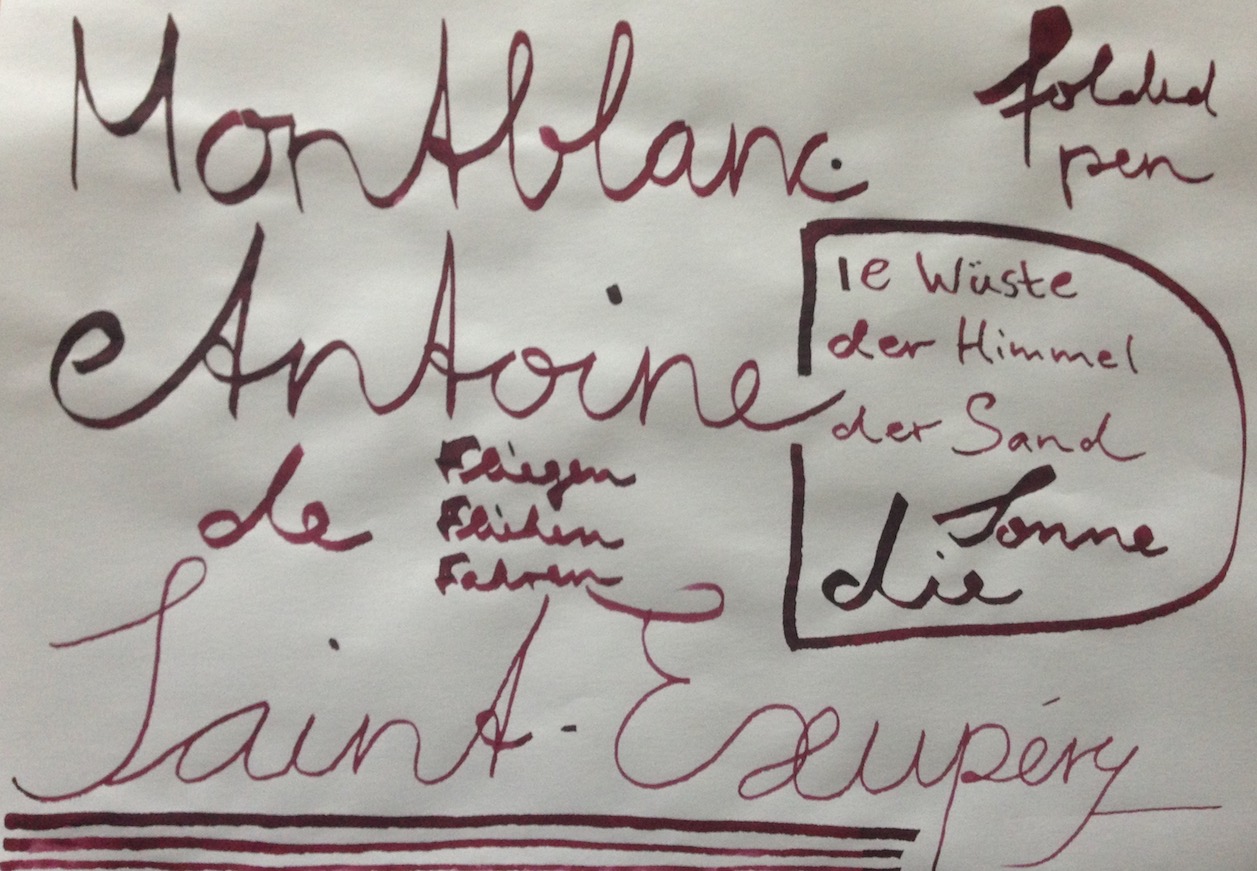 Montblanc.
folded
pen
Antoine
de
Fliegen
Fliehen
Fahren
Die Wüste
der Himmel
der Sand
die Sonne
Saint-Exupéry